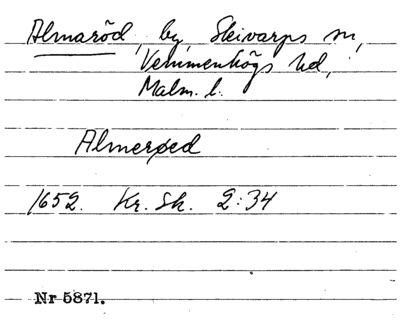 Almaröd, by, Skivarps sn,
Vemmenhögs hd,
Malm. l.
Almerøed
1652. Kr. Sk. 2:34
Nr 5871.